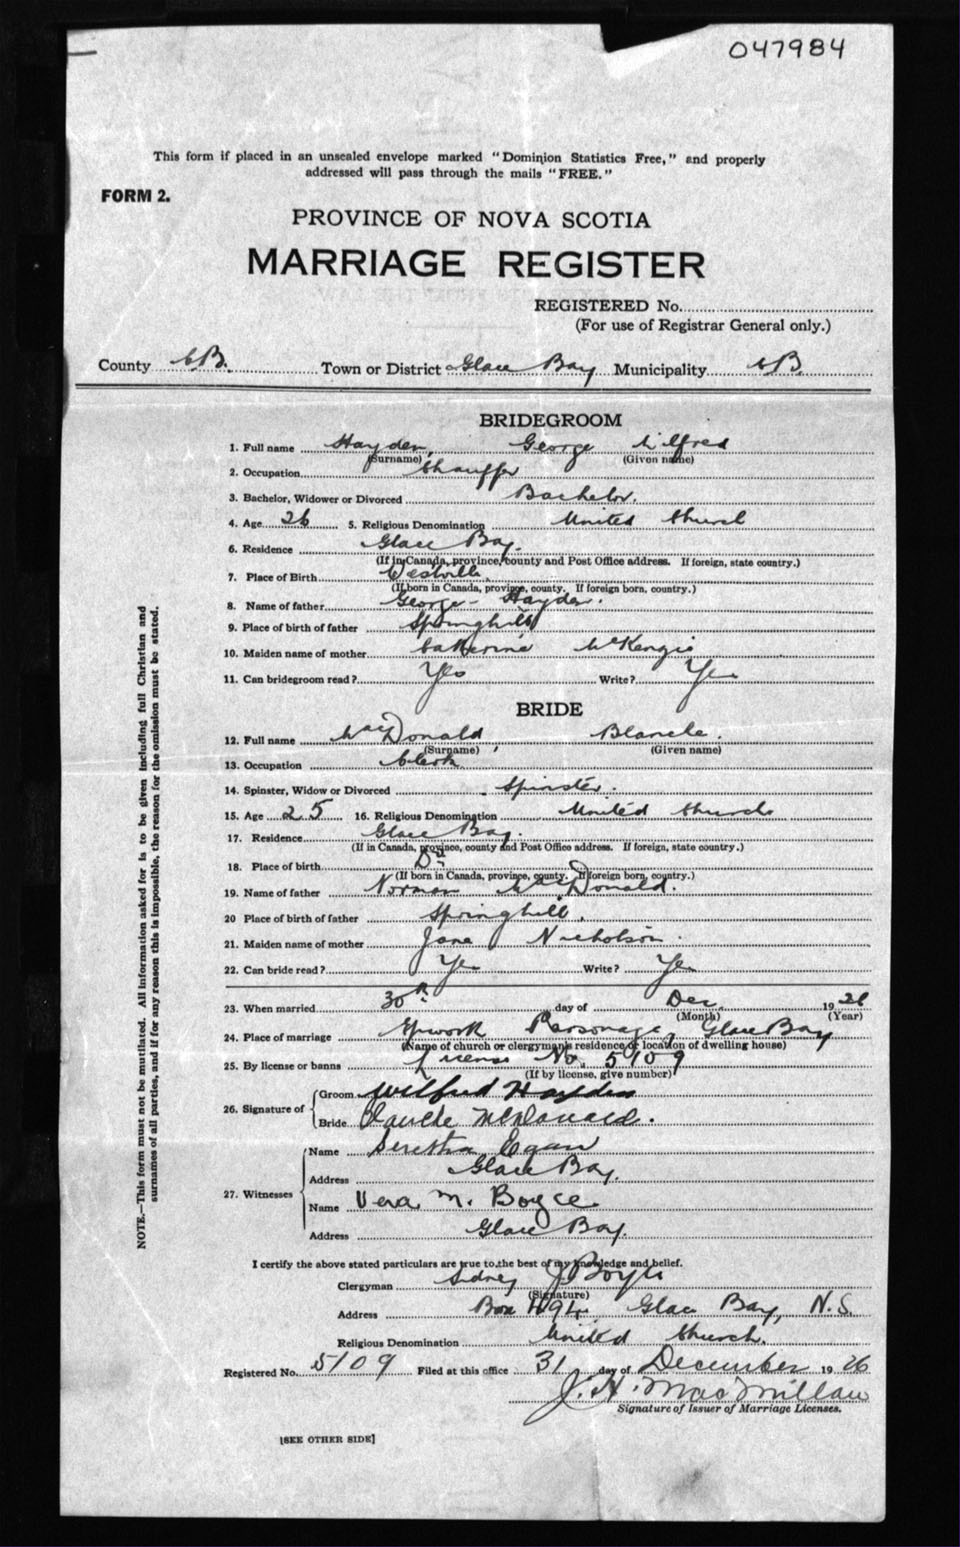 047984
This form if placed in an unsealed envelope marked "Dominion Statistics Free," and properly
addressed will pass through the mails "FREE."
FORM 2.
PROVINCE OF NOVA SCOTIA
MARRIAGE REGISTER
REGISTERED No.
(For use of Registrar General only.)
County C.B. Town or District Glace Bay Municipality C.B.
BRIDEGROOM
1. Full name Hayden, George Wilfred
(Surname) (Given name)
2. Occupation Chauffer
3. Bachelor, Widower or Divorced Bachelor.
4. Age 26 5. Religious Denomination United Church
6. Residence Glace Bay.
(If in Canada, province, county and Post Office address. If foreign, state country.)
7. Place of Birth Westville.
(If born in Canada, province, county. If foreign born, country.)
8. Name of father George Hayden.
9. Place of birth of father Springhill
10. Maiden name of mother Catherine McKenzie
11. Can bridegroom read? Yes Write? Yes
BRIDE
12. Full name MacDonald, Blanche.
(Surname) (Given name)
13. Occupation Clerk
14. Spinster, Widow or Divorced Spinster.
15. Age 25 16. Religious Denomination United Church
17. Residence Glace Bay.
(If in Canada, province, county and Post Office address. If foreign, state country.)
18. Place of birth Do
(If born in Canada, province, county. If foreign born, country.)
19. Name of father Norman MacDonald.
20 Place of birth of father Springhill.
21. Maiden name of mother Jane Nicholson.
22. Can bride read? Yes Write? Yes
23. When married 30th day of Dec. 1926
(Month) (Year)
24. Place of marriage Parsonage, Glace Bay
(Name of church or clergyman's residence or location of dwelling house)
25. By license or banns License No. 5109
(If by license, give number)
26. Signature of Groom Wilfred Hayden
Bride Blanche McDonald.
27. Witnesses Name Egan
Address Glace Bay.
Name Vera M. Boyce
Address Glace Bay.
I certify the above stated particulars are true to the best of my knowledge and belief.
Clergyman Sidney J Boyce
(Signature)
Address Box 494 Glace Bay, N.S.
Religious Denomination United Church.
Registered No. 5109 Filed at this office 31 day of December 1926
J. H. MacMillan
Signature of Issuer of Marriage Licenses.
[SEE OTHER SIDE]
NOTE.—This form must not be mutilated. All information asked for is to be given including full Christian and
surnames of all parties, and if for any reason this is impossible, the reason for the omission must be stated.